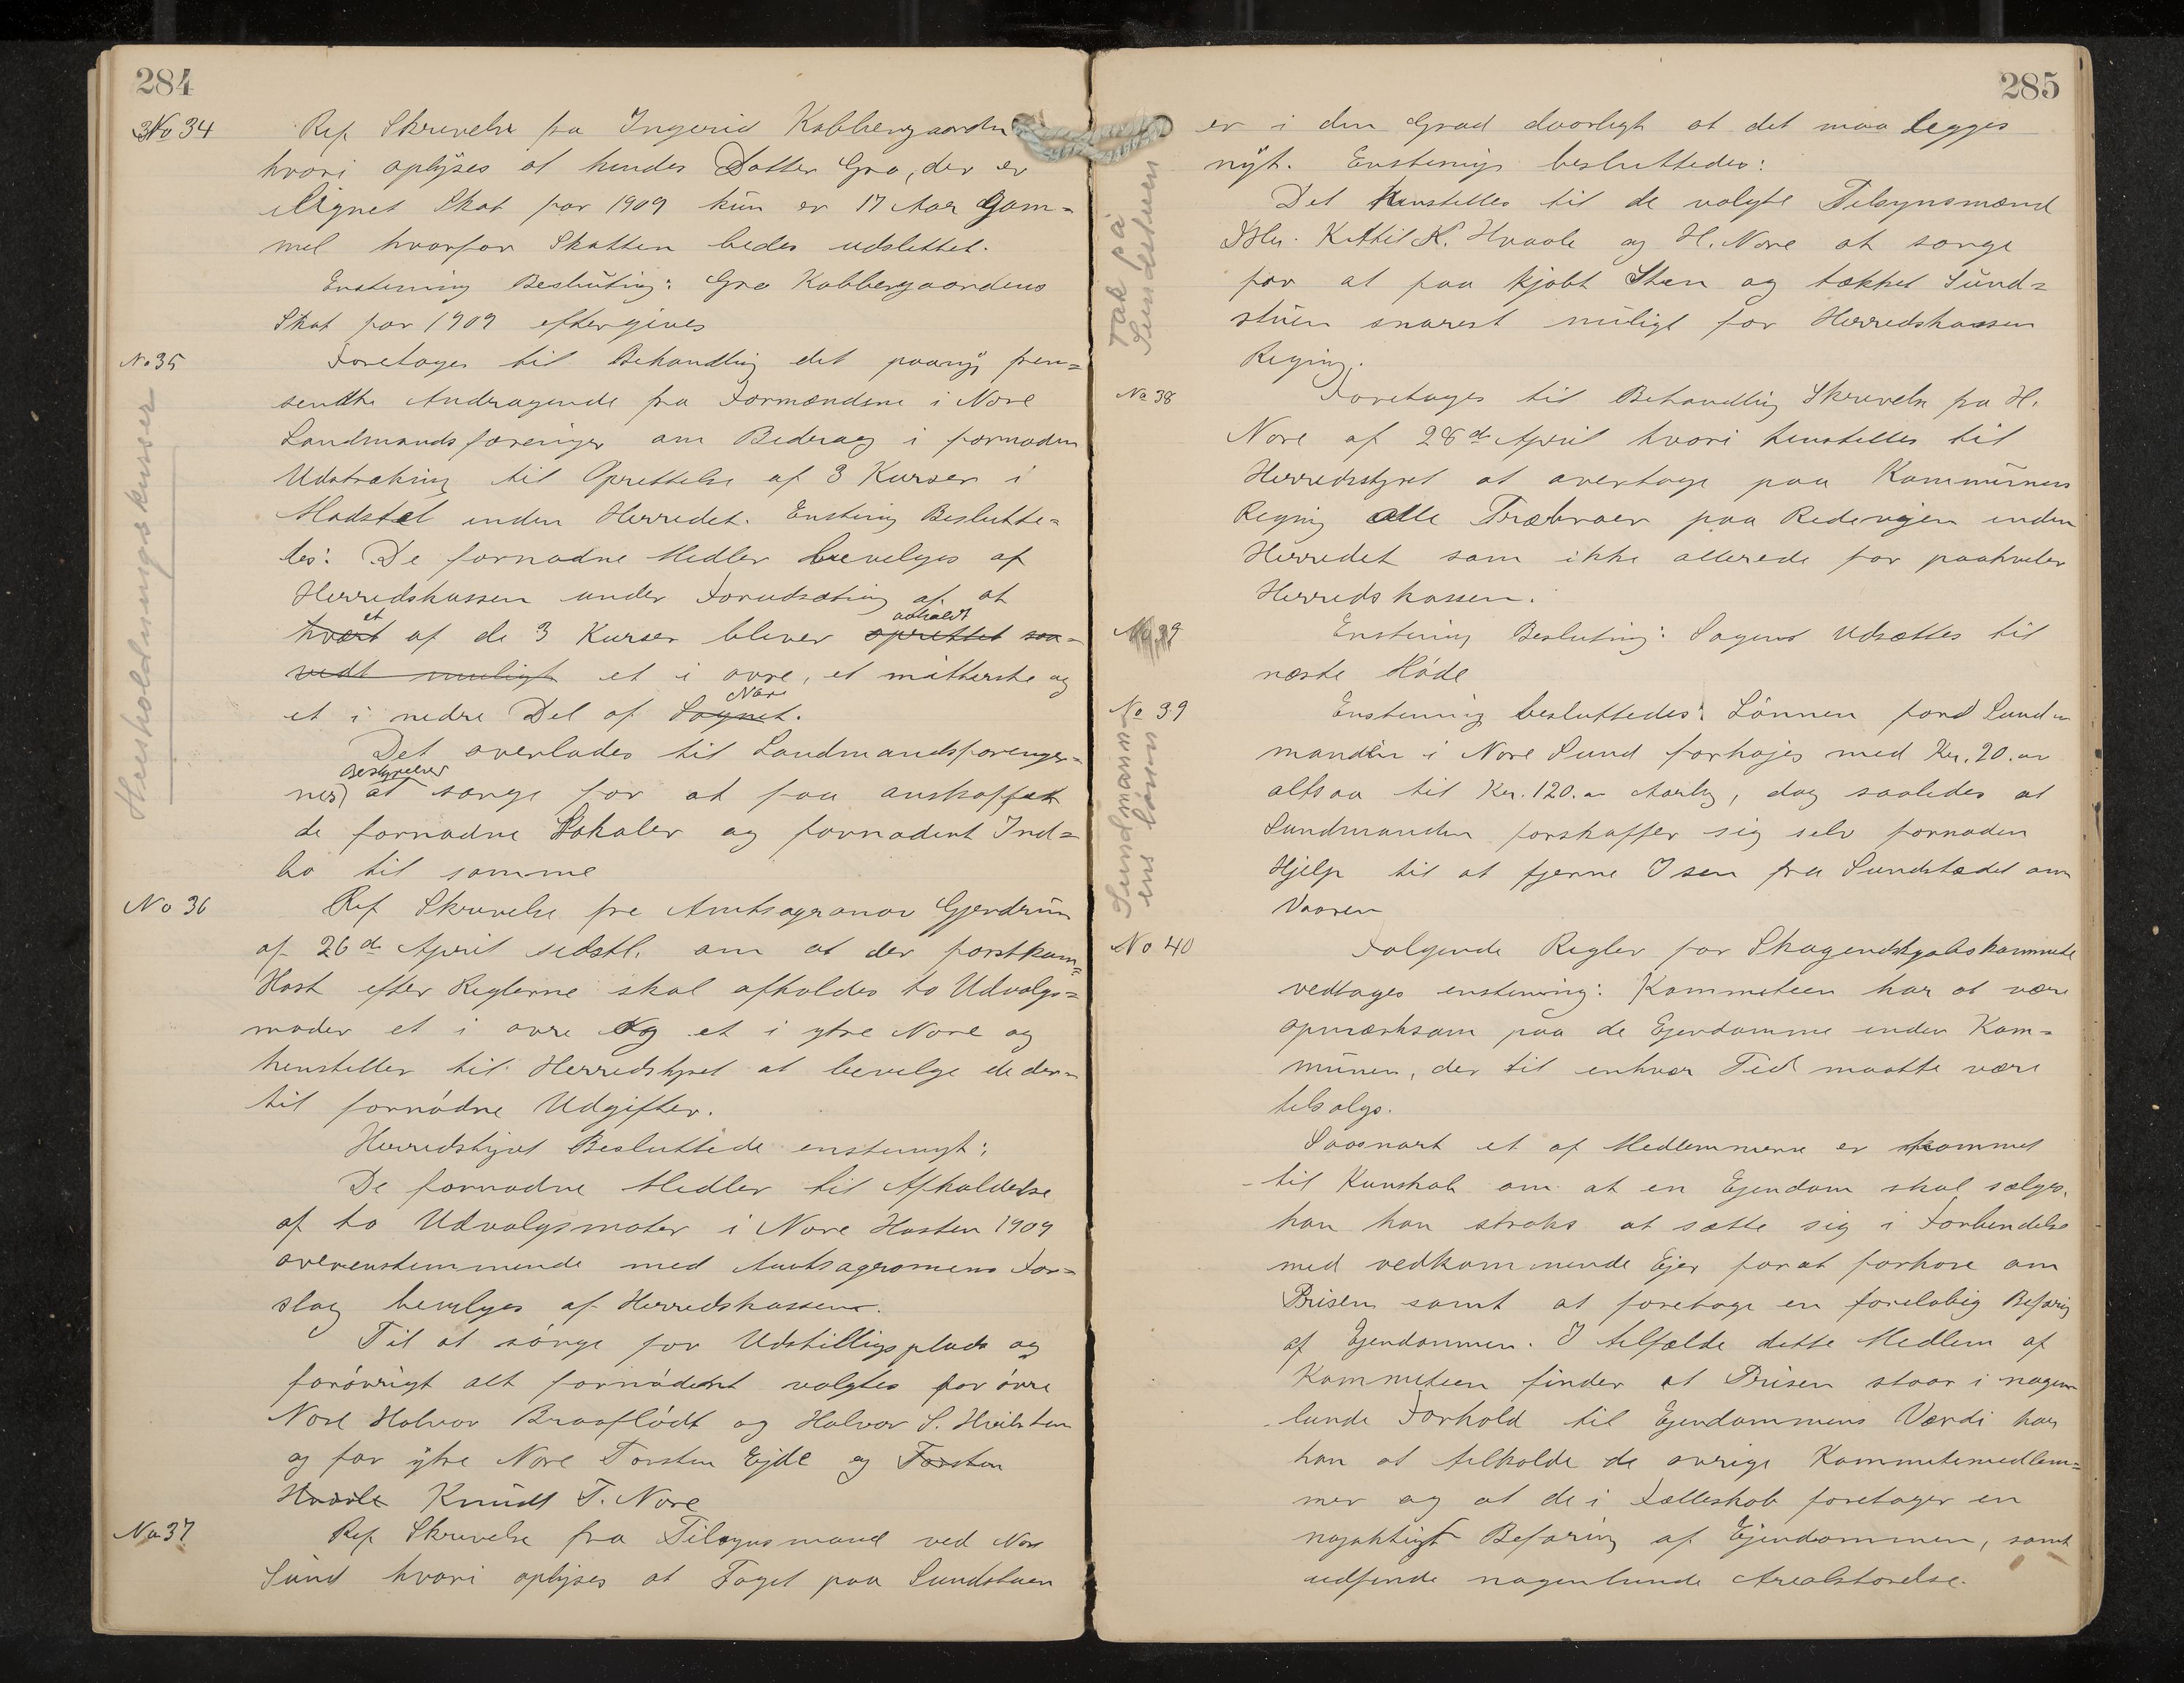 284
No 34 Ref Skrivelse fra Ingerid Kobbergaarden
hvori oplÿses at hendes Datter Gro, der er
ilignet Skat for 1909 kun er 17 Aar Gam=
mel hvorfor Skatten bedes udslettet.
Enstemmig Beslutning: Gro Kobbergaardens
Skat for 1909 eftergives
No 35 Foretages til Behandling det paanÿ frem=
sendte Andragende fra Formændene i Nore
Landmandsforeninger om Bidrag i fornøden
Udstrækning til Oprettelse af 3 Kurser i
Madstel inden Herredet. Enstemig Beslutte=
des: De fornødne Midler bevilges af
Herredskassen under Forudsætning af at
et avholdt
hvert af de 3 Kurser bliver oprettet saa=
vidt muligt et i øvre, et mitterste og
Nore
et i nedre Del af Sognet.
Husholdningskurser
Det overlades til Landmandsforeninger=
Bestyrelser
nes at sørge for at faa anskaffet
de fornødne Lokaler og fornødent Ind=
bo til samme
No 36 Ref Skrivelse fra Amtsagronom Gjerdrum
af 26de April sidstl. om at der førstkom=
Høst efter Reglerne skal afholdes to Udvalgs=
møder et i øvre og et i ytre Nore og
henstiller til Herredstyret at bevilge de der=
til fornødne Udgifter.
Herredstyret Besluttede enstemigt:
De fornødne Midler til Afholdelse
af to Udvalgsmøter i Nore Høsten 1909
overenstemmende med Amtsagronomens For=
slag bevilges af Herredskassen.
Til at sørge for Udstillingsplads og
forøvrigt alt fornødent valgtes for øvre
Nore Halvor Braaflødt og Halvor S.
og for ÿtre Nore Torsten Ejde og Torsten
Hvaale Knudt T. Nore
No 37 Ref Skrivelse fra Tilsynsmænd ved Nore
Sund hvori oplyses at Taget paa Sundstuen
285
er i den Grad daarligt at det maa legges
nÿt. Enstemig besluttedes:
Det henstilles til de valgte Tilsynsmænd
Hr. Kittil K. Hvaale og H. Nore at sørge
for at faa kjøbt Sten og tækket Sund=
stuen snarest muligt for Herredskassen
Regning.
Tak på
Sundestuen
No 38 Foretages til Behandling Skrivelse fra H.
Nore af 28de April hvori henstilles til
Herredsstyret at overtage paa Kommunens
Regning alle Træbroer paa Rideveigen inden
Herredet som ikke allerede før paahviler
Herredskassen.
No 39 Enstemig Beslutning: Sagens Udsættes til
næste Møde
No 39 Enstemmig besluttedes: Lønnen for Sund=
manden i Nore Sund forhøjes med Kr. 20.00
altsaa til Kr. 120.00 Aarlig, dog saaledes at
Sundmanden forskaffer sig selv fornøden
Hjelp til at fjerne Isen fra Sundstedet om
Vaaren
Sundmannen
ens lønn
No 40 Følgende Regler for Skogendskjøbskommite
vedtages enstemig: Kommiteen har at være
opmærksom paa de Ejendomme inden Kom=
munen, der til enhver Tid maatte være
tilsalgs.
Saasnart et af Medlemmerne er kommet
til Kunskab om at en Ejendom skal sælges,
har han straks at sætte sig i Forbindelse
med vedkommende Ejer forat forhøre om
Prisen samt at foretage en foreløbig Befaring
af Ejendommen. I tilfælde dette Medlem af
Kommiteen finder at Prisen staar i nogen=
lunde Forhold til Ejendommens Værdi har
han at tilkalde de øvrige Kommitemedlem=
mer og at de i Fælleskab foretager en
nøjaktigt Befaring af Ejendommen, samt
udfinde nogenlunde Arealstørelse.